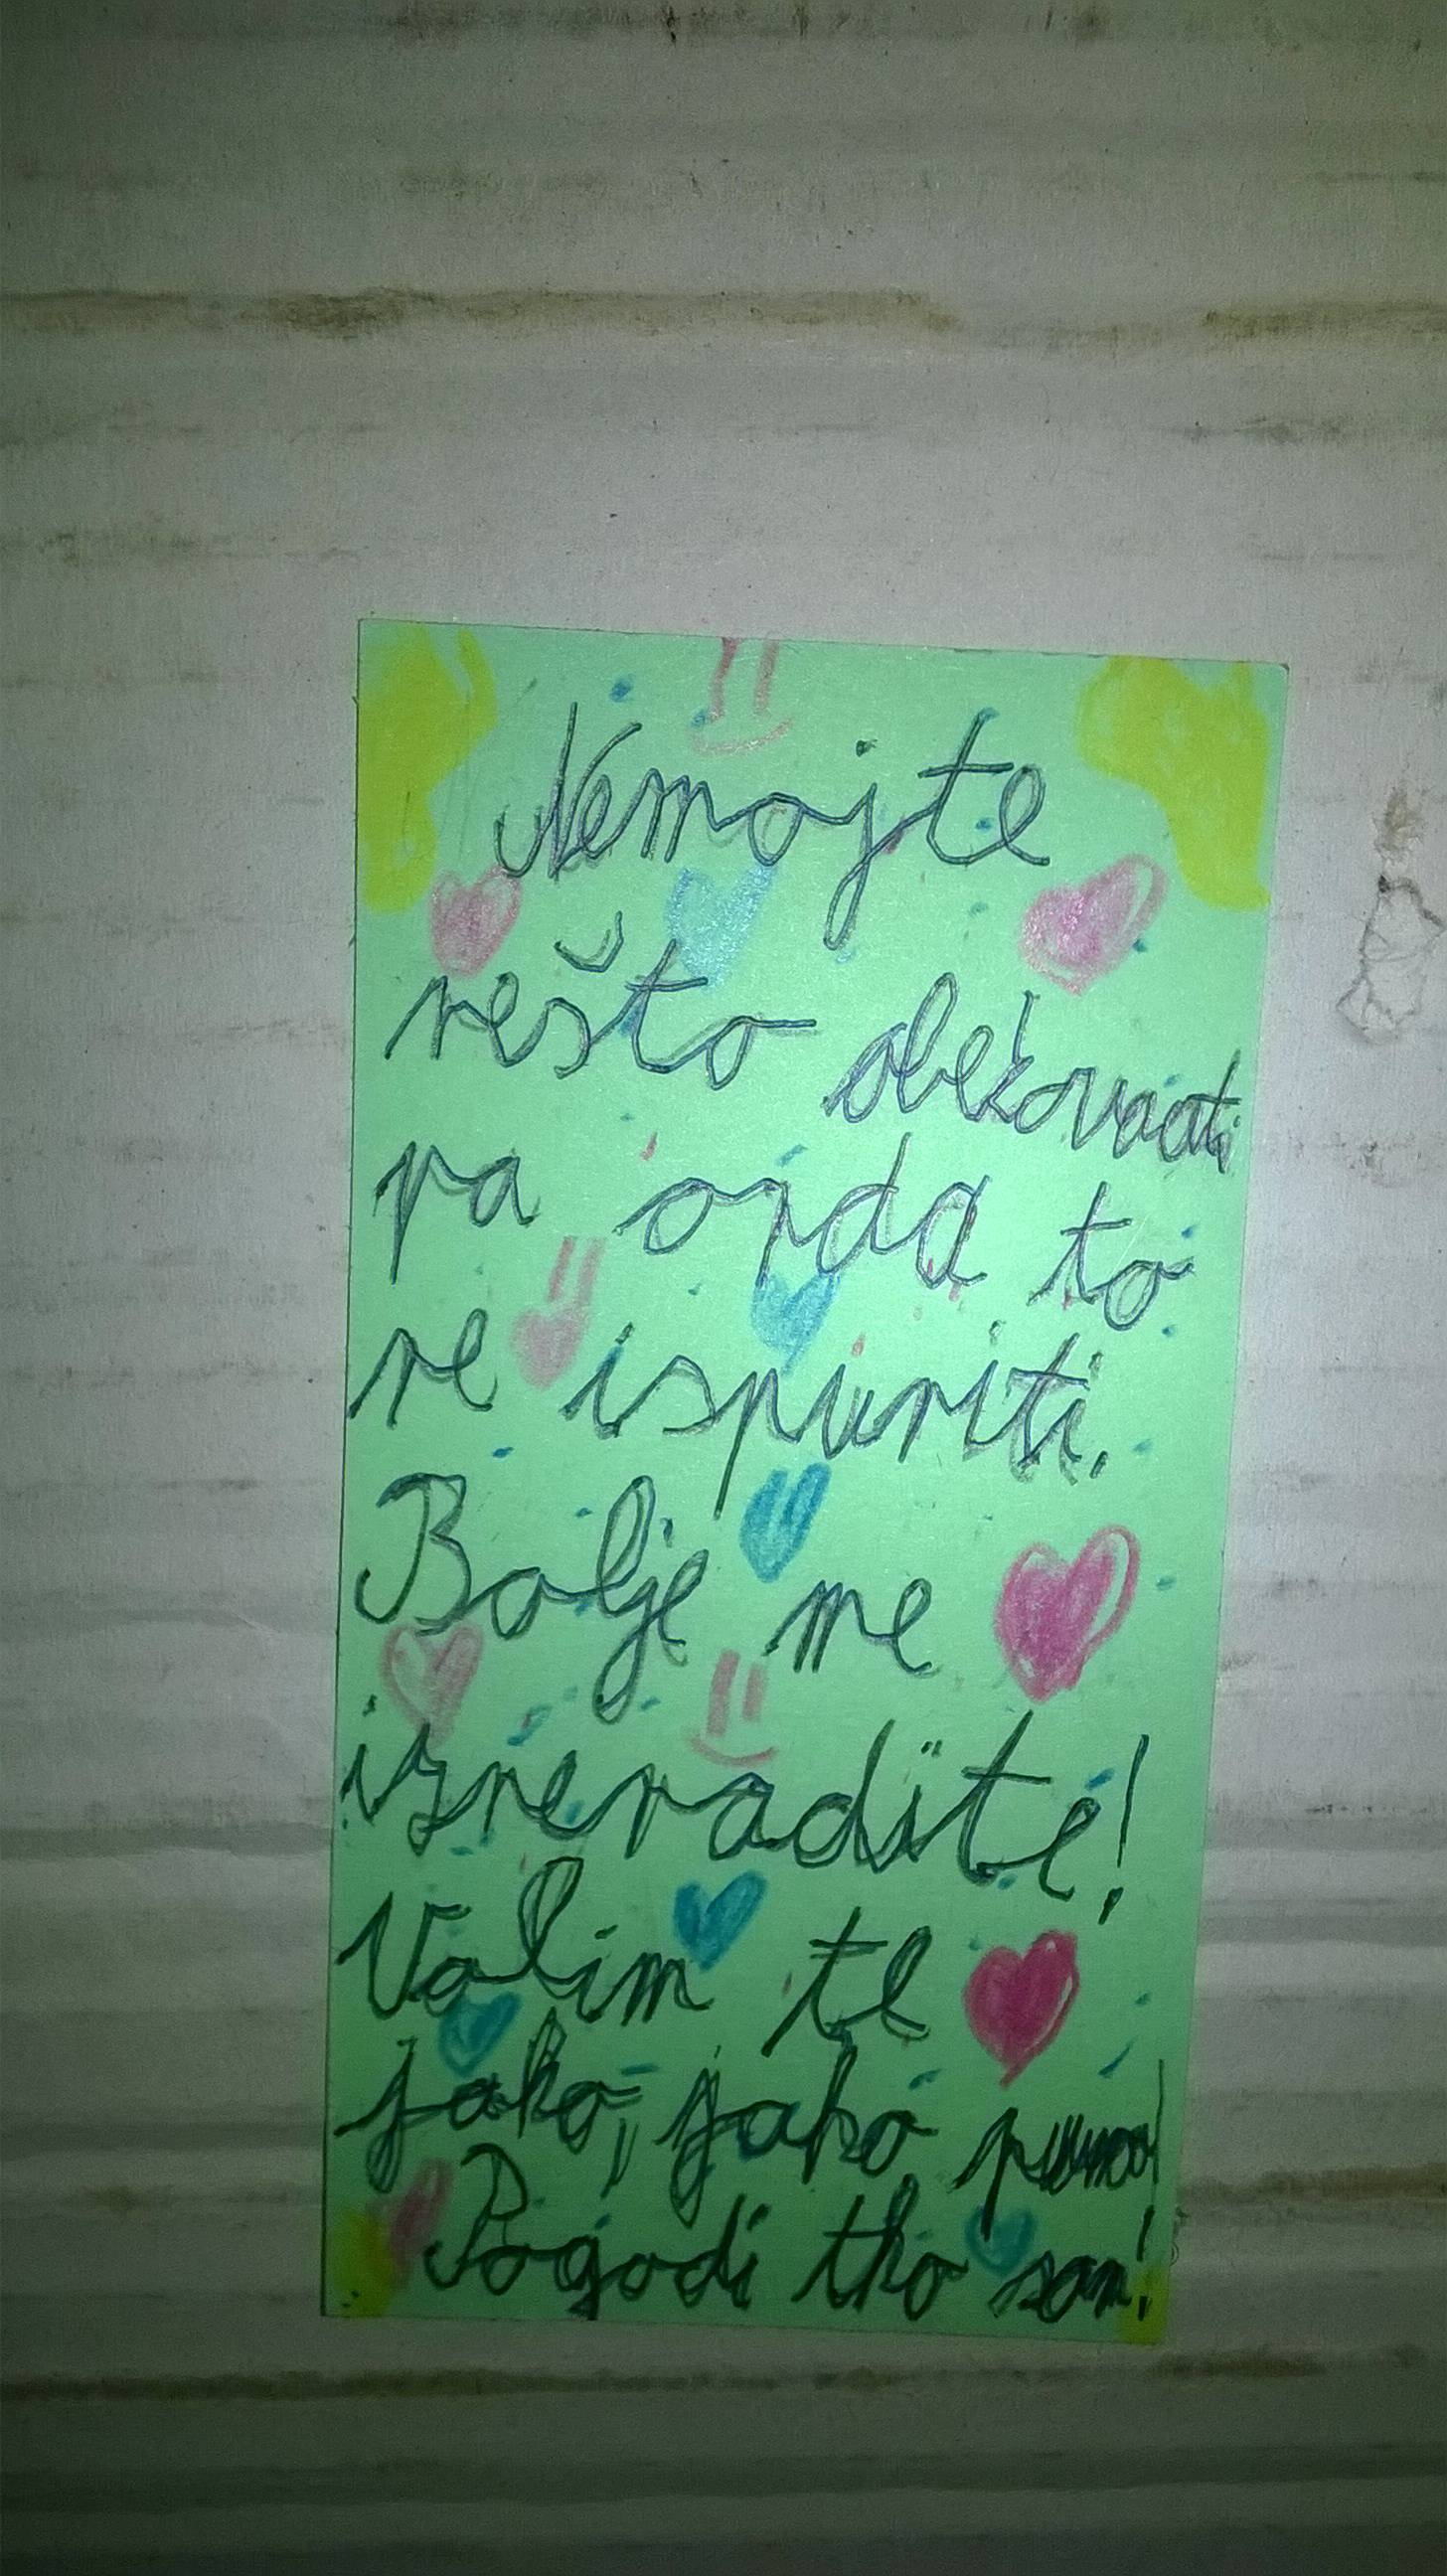 Nemojte
nešto obećovati
pa onda to
ne ispuniti.
Bolje me
iznenadite!
Volim te
jako, jako puno!
Pogodi tko sam!